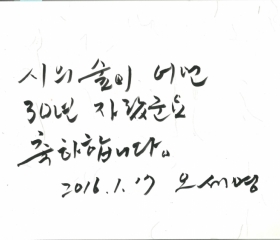 시의 숲이 어언
30년 자랐군요
축하합니다.
2016.1.17 오세영